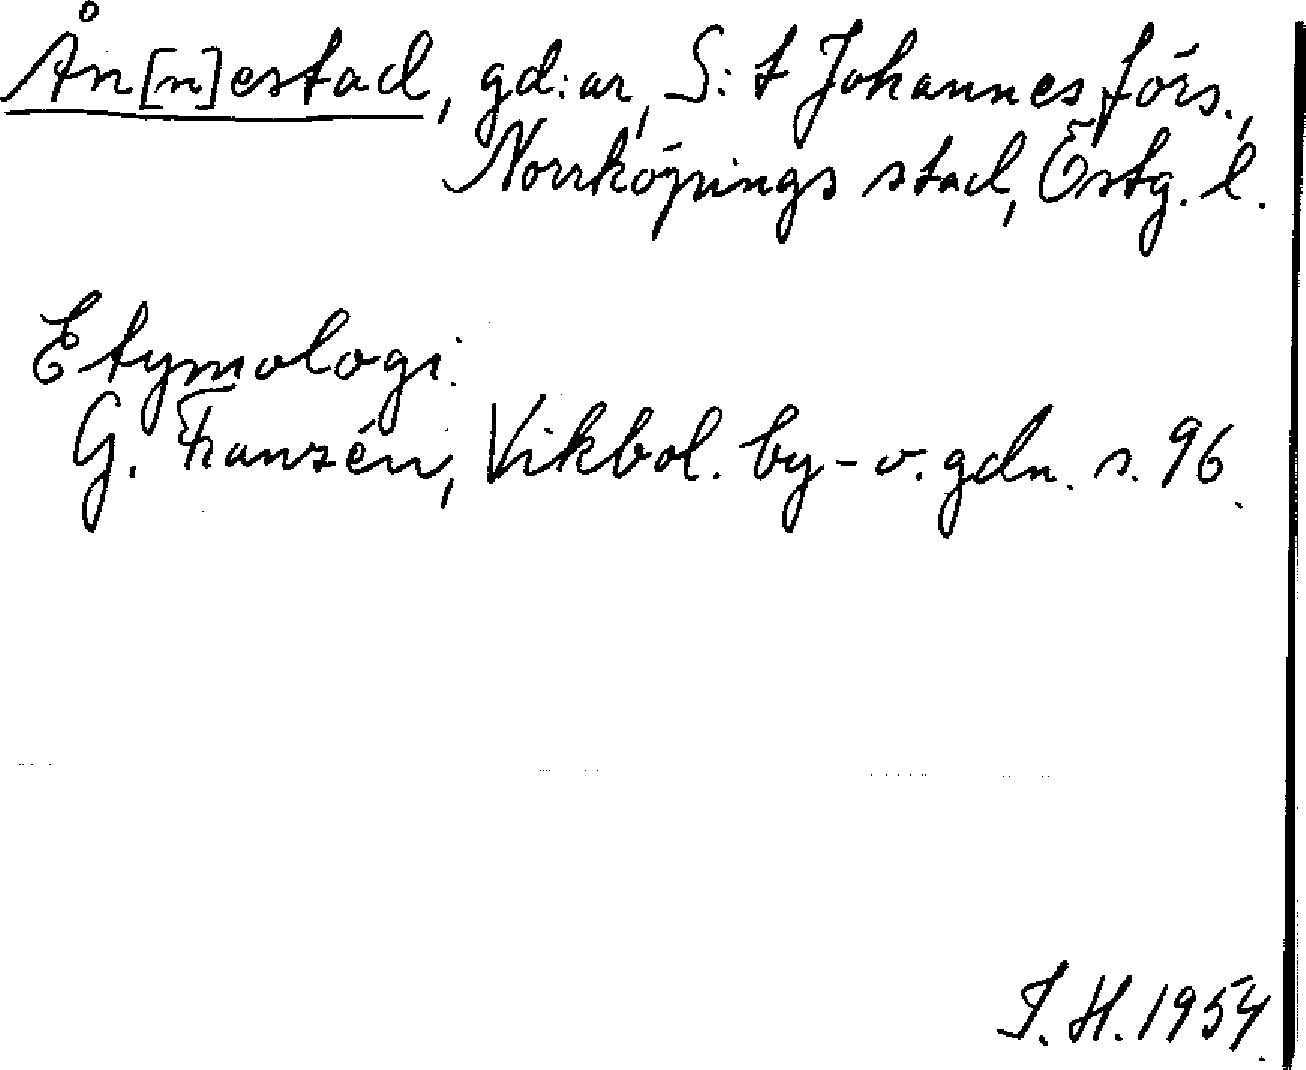 Ån[n]estad, gd:ar, S:t Johannes förs.,
Norrköpings stad, Östg. l.
Etymologi.
G. Franzén, Vikbol. by- o. gdn. s. 96.
I. H. 1954.